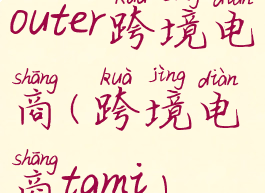 kuà jìng diàn
outer跨境电
shāng kuà jìng diàn
商(跨境电
shāng
商tami)